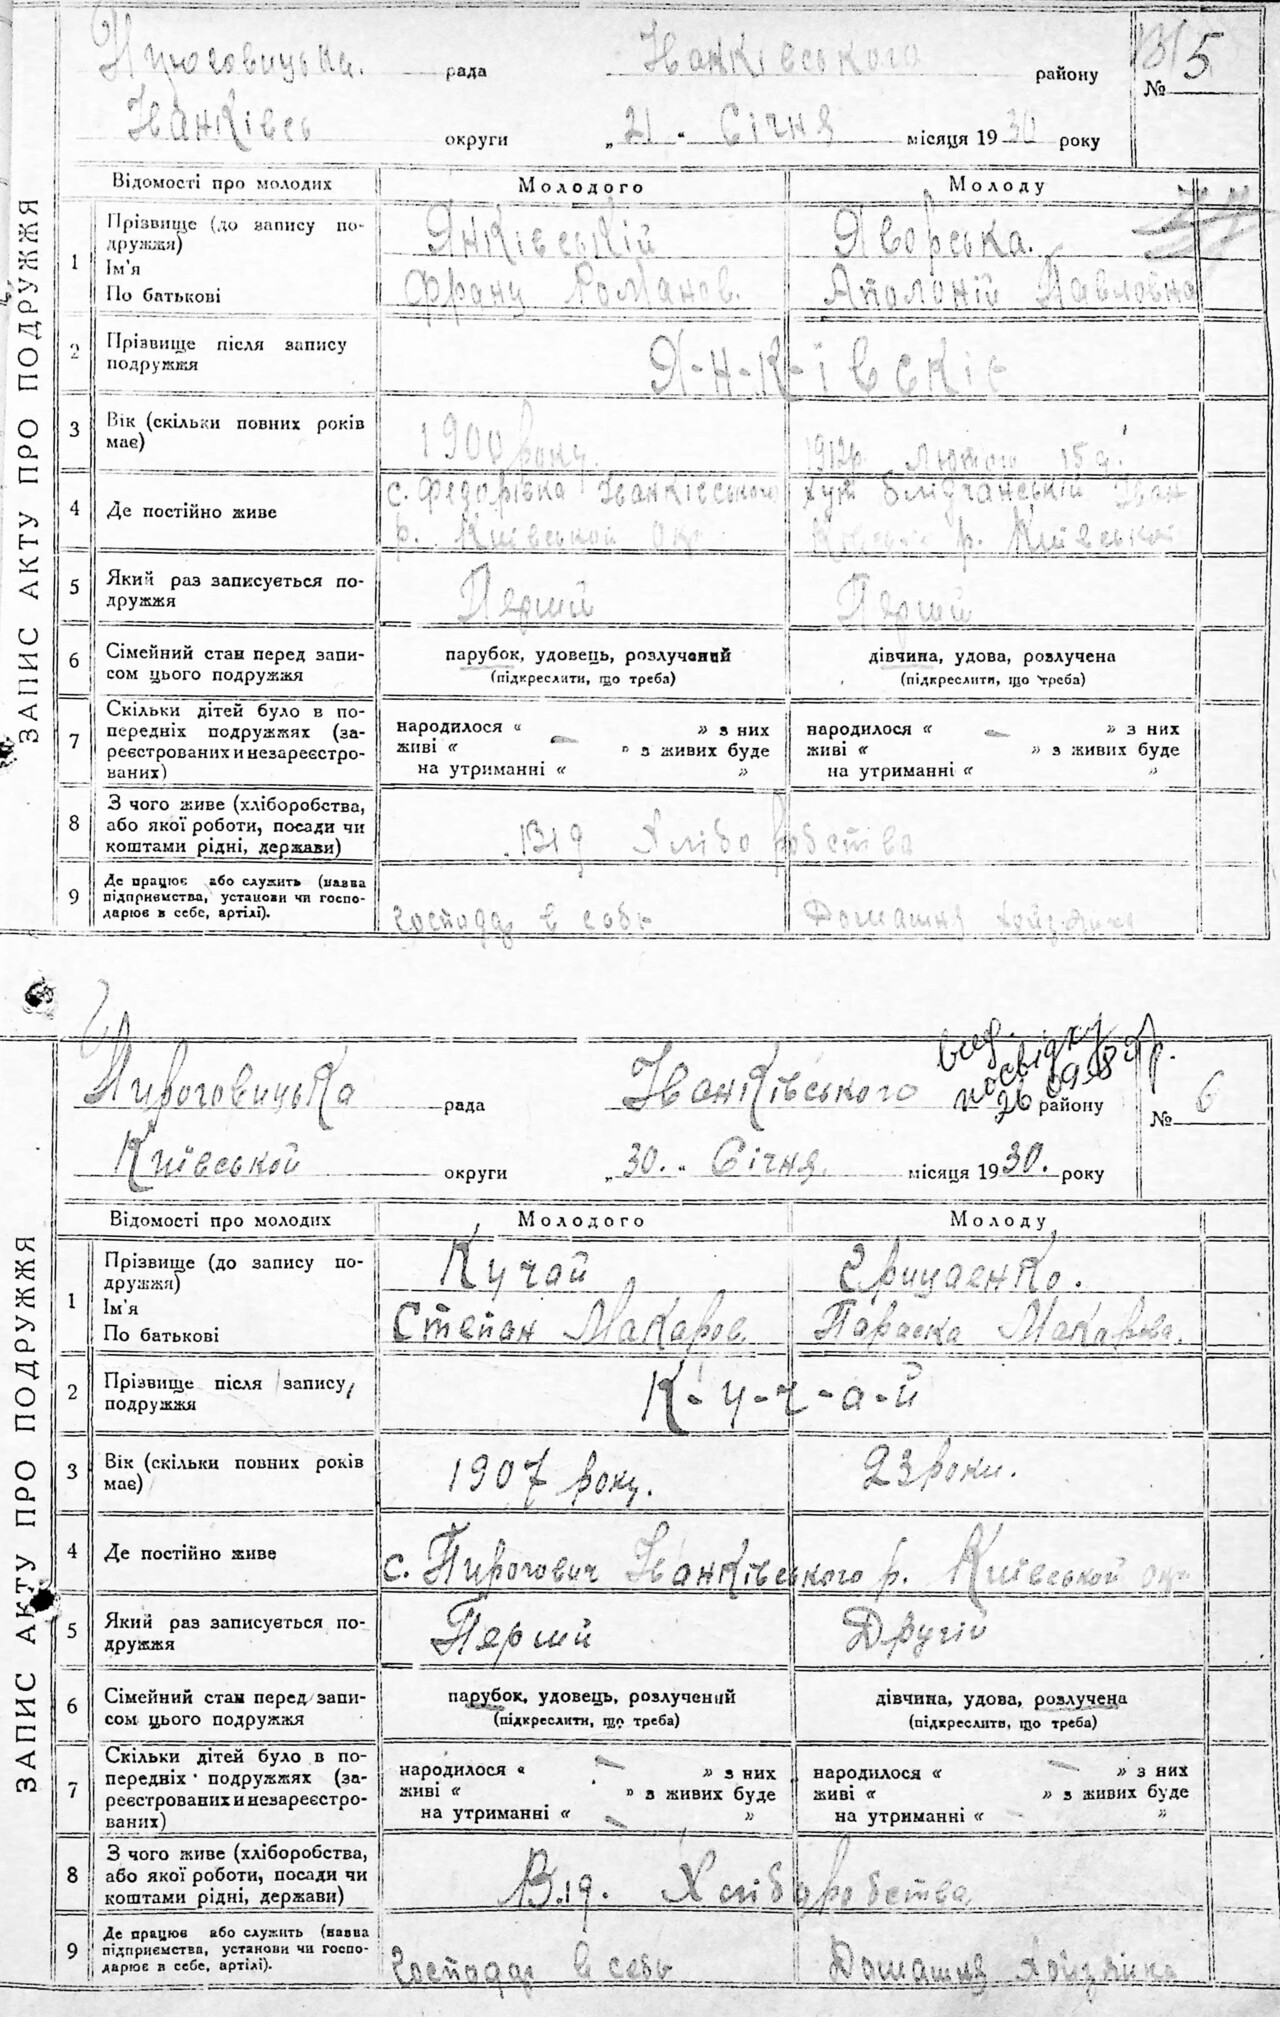 рада Іванківського району № 5
Іванківсь округи „21" Січня місяця 1930 року
ЗАПИС АКТУ ПРО ПОДРУЖЖЯ
Відомості про молодих Молодого Молоду
1 Прізвище (до запису по-
дружжя) Янківській Яворська.
Ім'я
По батькові Франц Романов. Аполоній Павловна
2 Прізвище після запису
подружжя Я-н-к-івскіє
3 Вік (скільки повних років
має) 1900 року. 1912р. Лютого 15 д.
4 Де постійно живе с. Федорівка Іванківського хут Блідчанській Іван
р. Київської Окр р. Київської
5 Який раз записується по-
дружжя Перший Перший
6 Сімейний стан перед запи-
сом цього подружжя парубок, удовець, розлучений дівчина, удова, розлучена
(підкреслити, що треба) (підкреслити, що треба)
7 Скільки дітей було в по-
передніх подружжях (за-
реєстрованих и незареєстро-
ваних) народилося « — » з них народилося « — » з них
живі « » з живих буде живі « » з живих буде
на утриманні « » на утриманні « »
8 З чого живе (хліборобства,
або якої роботи, посади чи
коштами рідні, держави) Від Хліборобства
9 Де працює або служить (назва
підприємства, установи чи госпо-
дарює в себе, артілі). Господар в себе Домашня хойзяйка
Пироговицька рада Іванківського району № 6
посвідку
26
Київської округи „30." Січня. місяця 1930. року
ЗАПИС АКТУ ПРО ПОДРУЖЖЯ
Відомості про молодих Молодого Молоду
1 Прізвище (до запису по-
дружжя) Кучай Грицаенко.
Ім'я
По батькові Степан Макаров. Параска Макарова.
2 Прізвище після запису
подружжя К-у-ч-а-й
3 Вік (скільки повних років
має) 1907 року. 23 роки.
4 Де постійно живе с. Пирогович Іванківського р. Київської окр
5 Який раз записується по-
дружжя Перший Другій
6 Сімейний стан перед запи-
сом цього подружжя парубок, удовець, розлучений дівчина, удова, розлучена
(підкреслити, що треба) (підкреслити, що треба)
7 Скільки дітей було в по-
передніх подружжях (за-
реєстрованих и незареєстро-
ваних) народилося « — » з них народилося « — » з них
живі « » з живих буде живі « » з живих буде
на утриманні « — » на утриманні « »
8 З чого живе (хліборобства,
або якої роботи, посади чи
коштами рідні, держави) Від. Хліборобства
9 Де працює або служить (назва
підприємства, установи чи госпо-
дарює в себе, артілі). Господар в себе Домашня хойзяйка